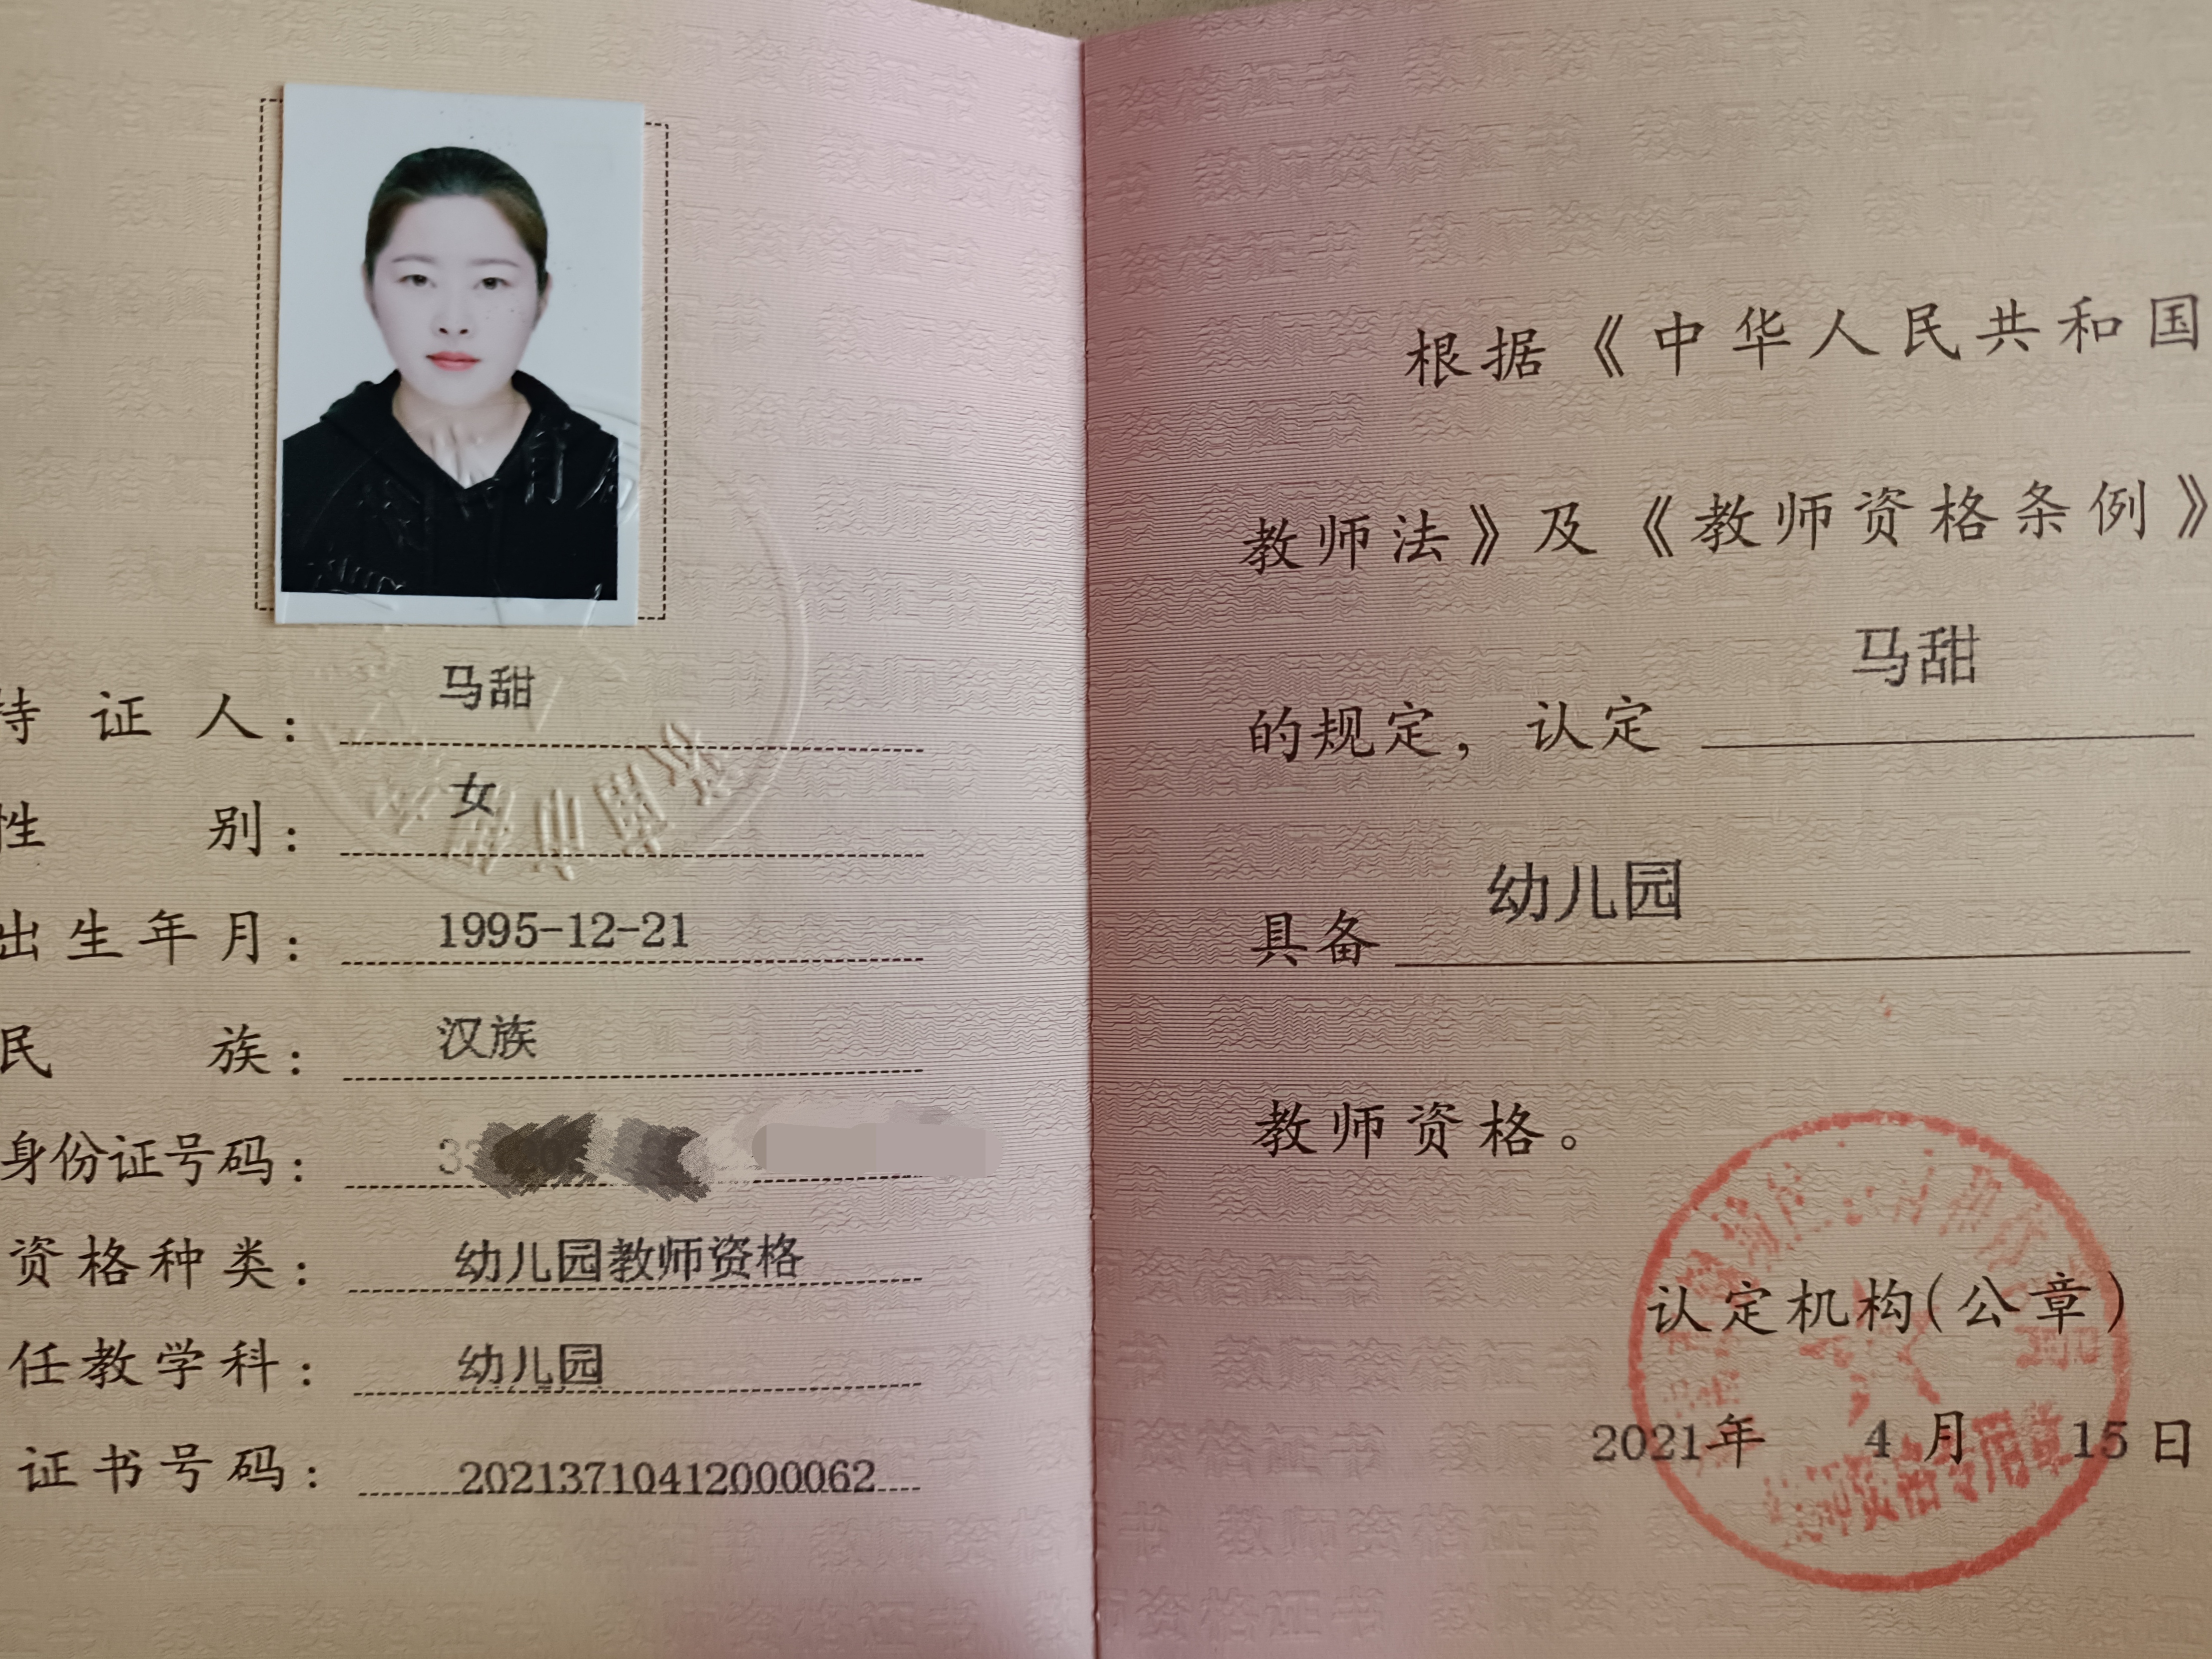 持证人：马甜
性别：女
出生年月：1995-12-21
民族：汉族
身份证号码：
资格种类：幼儿园教师资格
任教学科：幼儿园
证书号码：20213710412000062
根据《中华人民共和国
教师法》及《教师资格条例》
的规定，认定 马甜
具备 幼儿园
教师资格。
认定机构(公章)
2021年 4月 15日